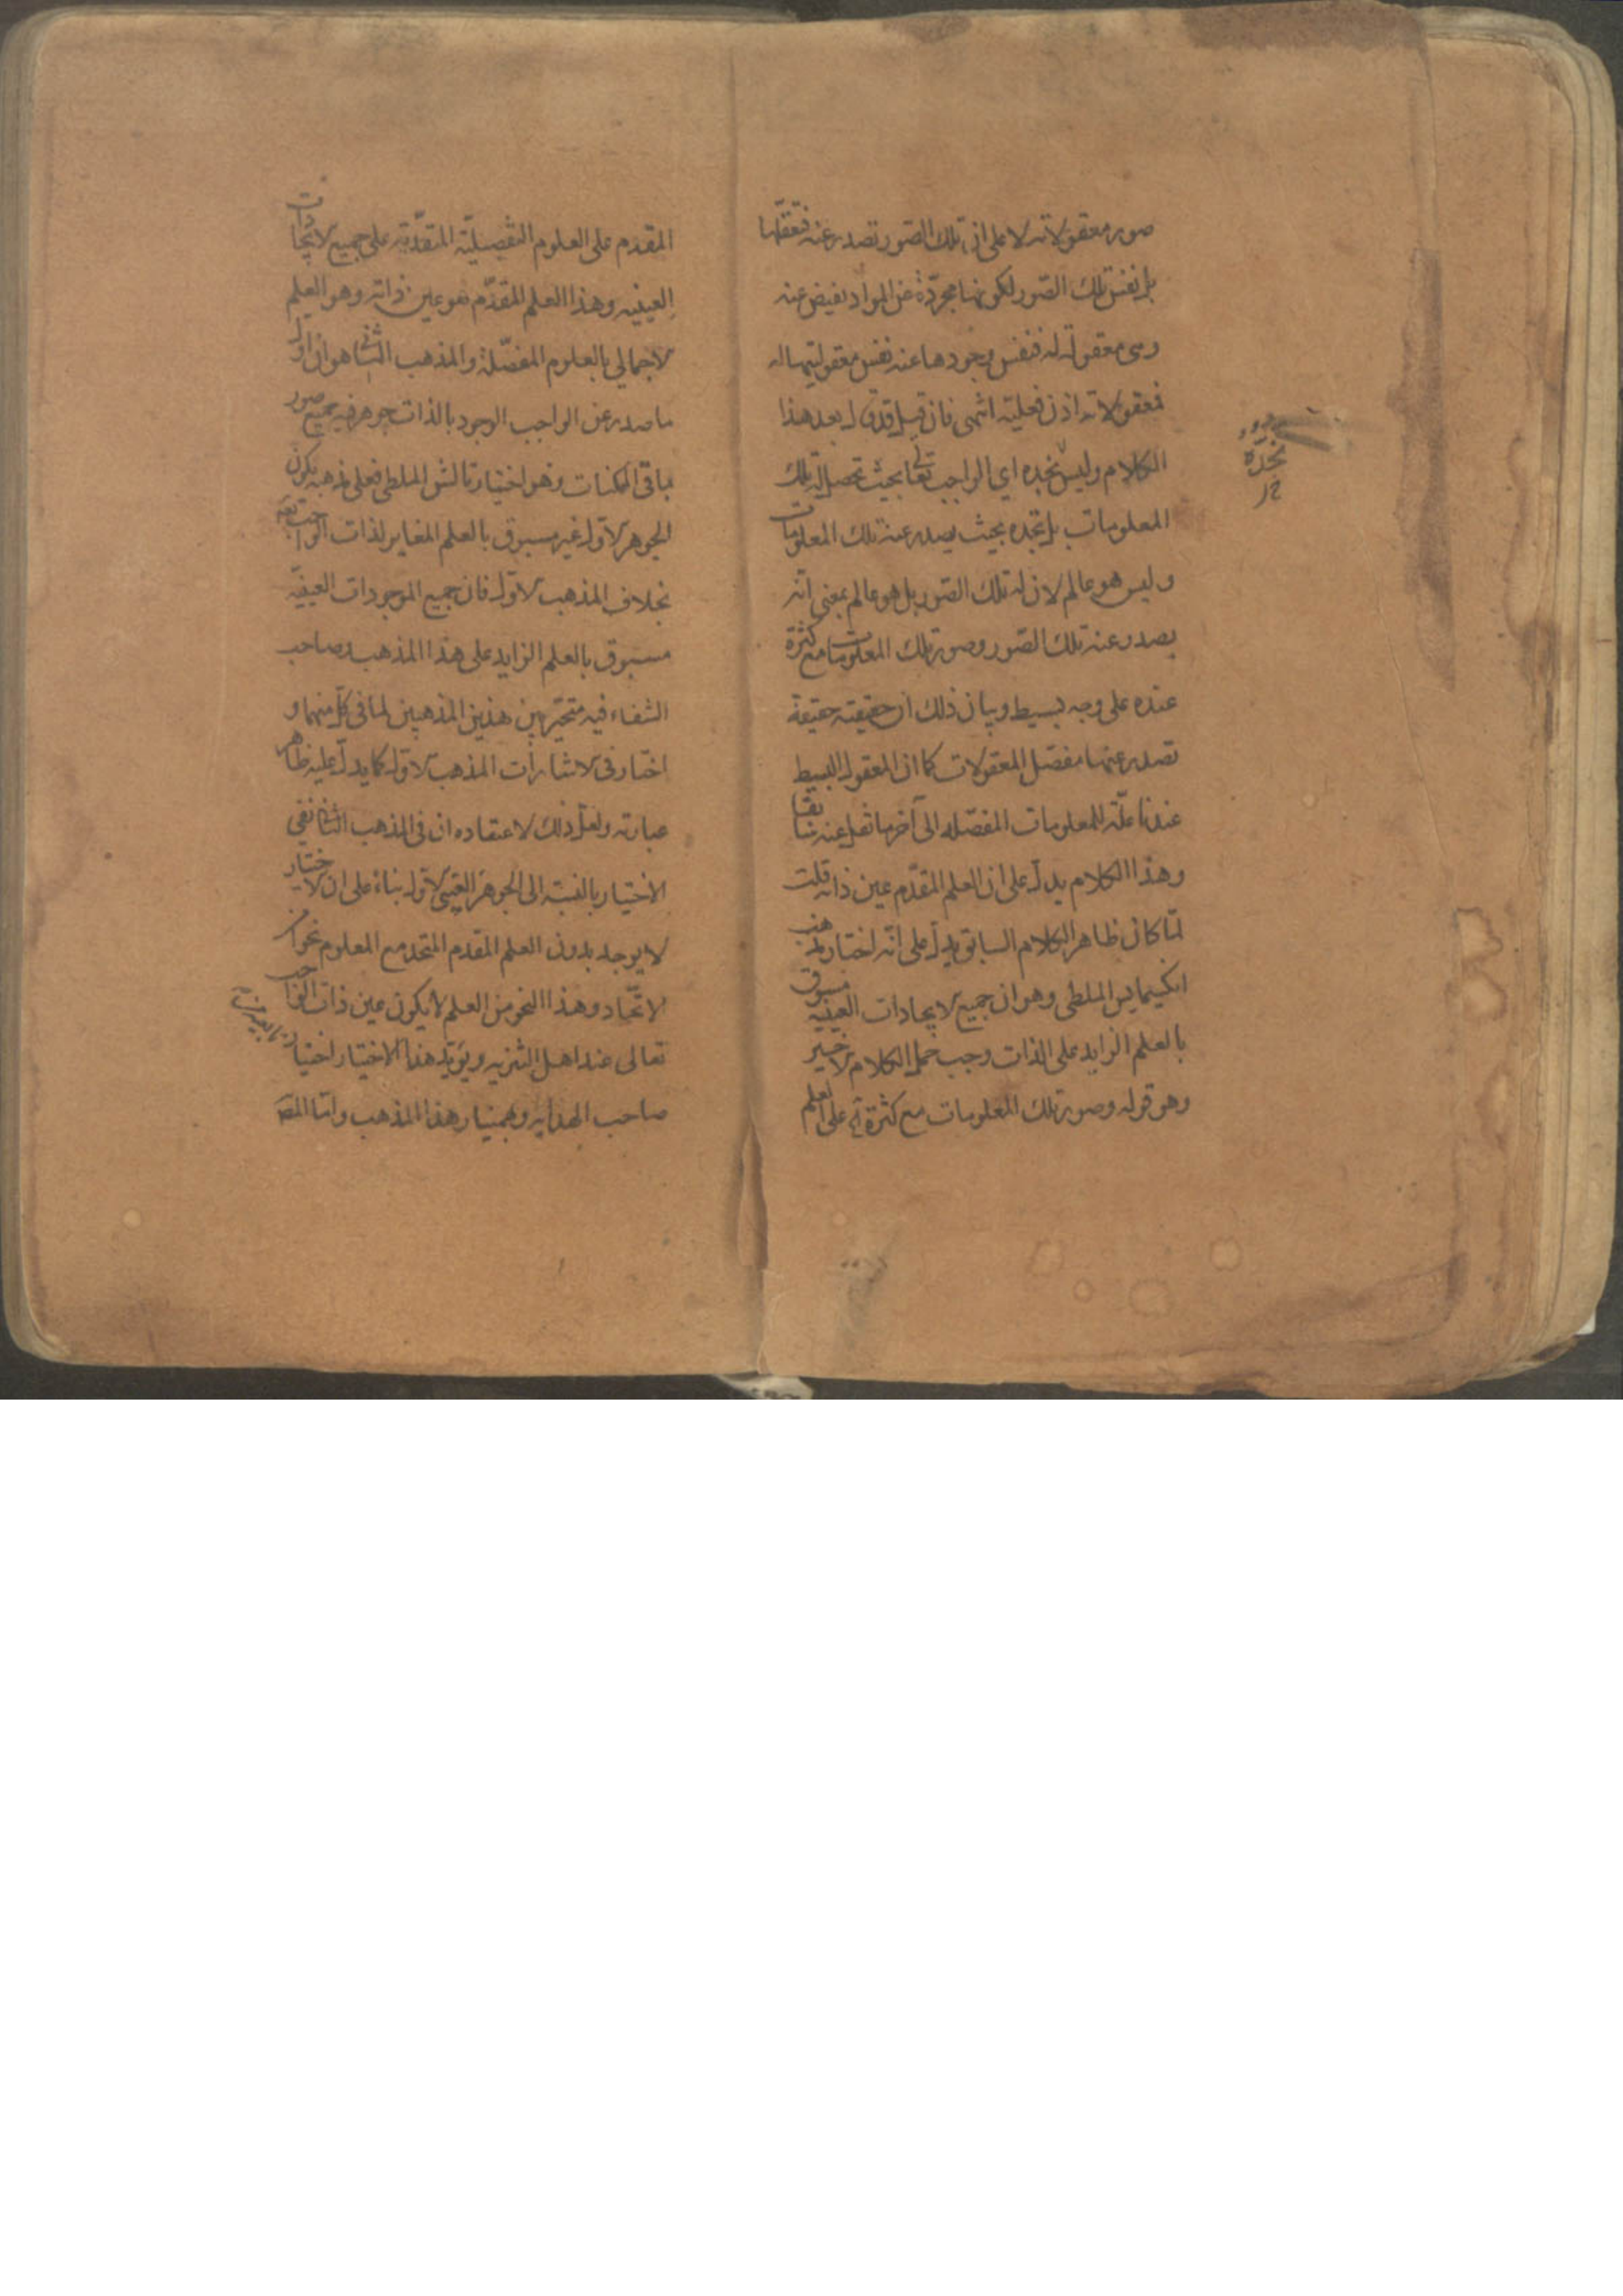 صور معقولاته لا على ان تلك الصور تصدر عنه فتعقلها
بل نفس تلك الصور لكونها مجردة عن المواد تفيض عنه
وهى معقولة له فنفس وجودها عنه نفس معقوليتها له
فمعقولاته اذن فعلية انتهى فان قيل قد قال بعد هذا
الكلام وليس نجده اي الواجب تعالى بحيث تحصل له تلك
المعلومات بل نجده بحيث يصدر عنه تلك المعلومات
وليس هو عالم لان له تلك الصور بل هو عالم بمعنى انه
يصدر عنه تلك الصور وصور تلك المعلومات مع كثرة
عنده على وجه بسيط وبيان ذلك ان حقيقته حقيقة
تصدر عنها مفصل المعقولات كما ان المعقول البسيط
عندنا علة للمعلومات المفصله الى آخر ما نقل عنه سابقا
وهذا الكلام يدل على ان العلم المقدم عين ذاته قلت
لما كان ظاهر الكلام السابق يدل على انه اختار مذهب
انكسيمايس الملطى وهو ان جميع الايجادات العينيه مسبوق
بالعلم الزايد على الذات وجب حمل الكلام الاخير
وهو قوله وصور تلك المعلومات مع كثرة على العلم
نجده
المقدم على العلوم التفصيلية المتقدمة على جميع الايجادات
العينيه وهذا العلم المقدم هو عين ذاته وهو العلم
الاجمالي بالعلوم المفصلة والمذهب الثاني هو ان اول
ما صدر عن الواجب الوجود بالذات جوهر فيه جميع صور
باقى الممكنات وهو اختيار ثالس الملطى فعلى مذهبه يكون
الجوهر الاول غير مسبوق بالعلم المغاير لذات الواجب تعه
بخلاف المذهب الاول فان جميع الموجودات العينيه
مسبوق بالعلم الزايد على هذا المذهب وصاحب
الشفاء فيه متحير بين هذين المذهبين لما فى كل منهما و
اختار فى الاشارات المذهب الاول كما يدل عليه ظاهر
عبارته ولعل ذلك لاعتقاده ان فى المذهب الثانى نفى
الاختيار بالنسبة الى الجوهر العينى الاول بناء على ان الاختيار
لا يوجد بدون العلم المقدم المتحد مع المعلوم نحوا من
الاتحاد وهذا النحو من العلم لا يكون عين ذات الواجب
تعالى عند اهل التنزيه ويؤيد هذا الاختيار اختيار
صاحب الهدايه وبهمنيار هذا المذهب واما المقه